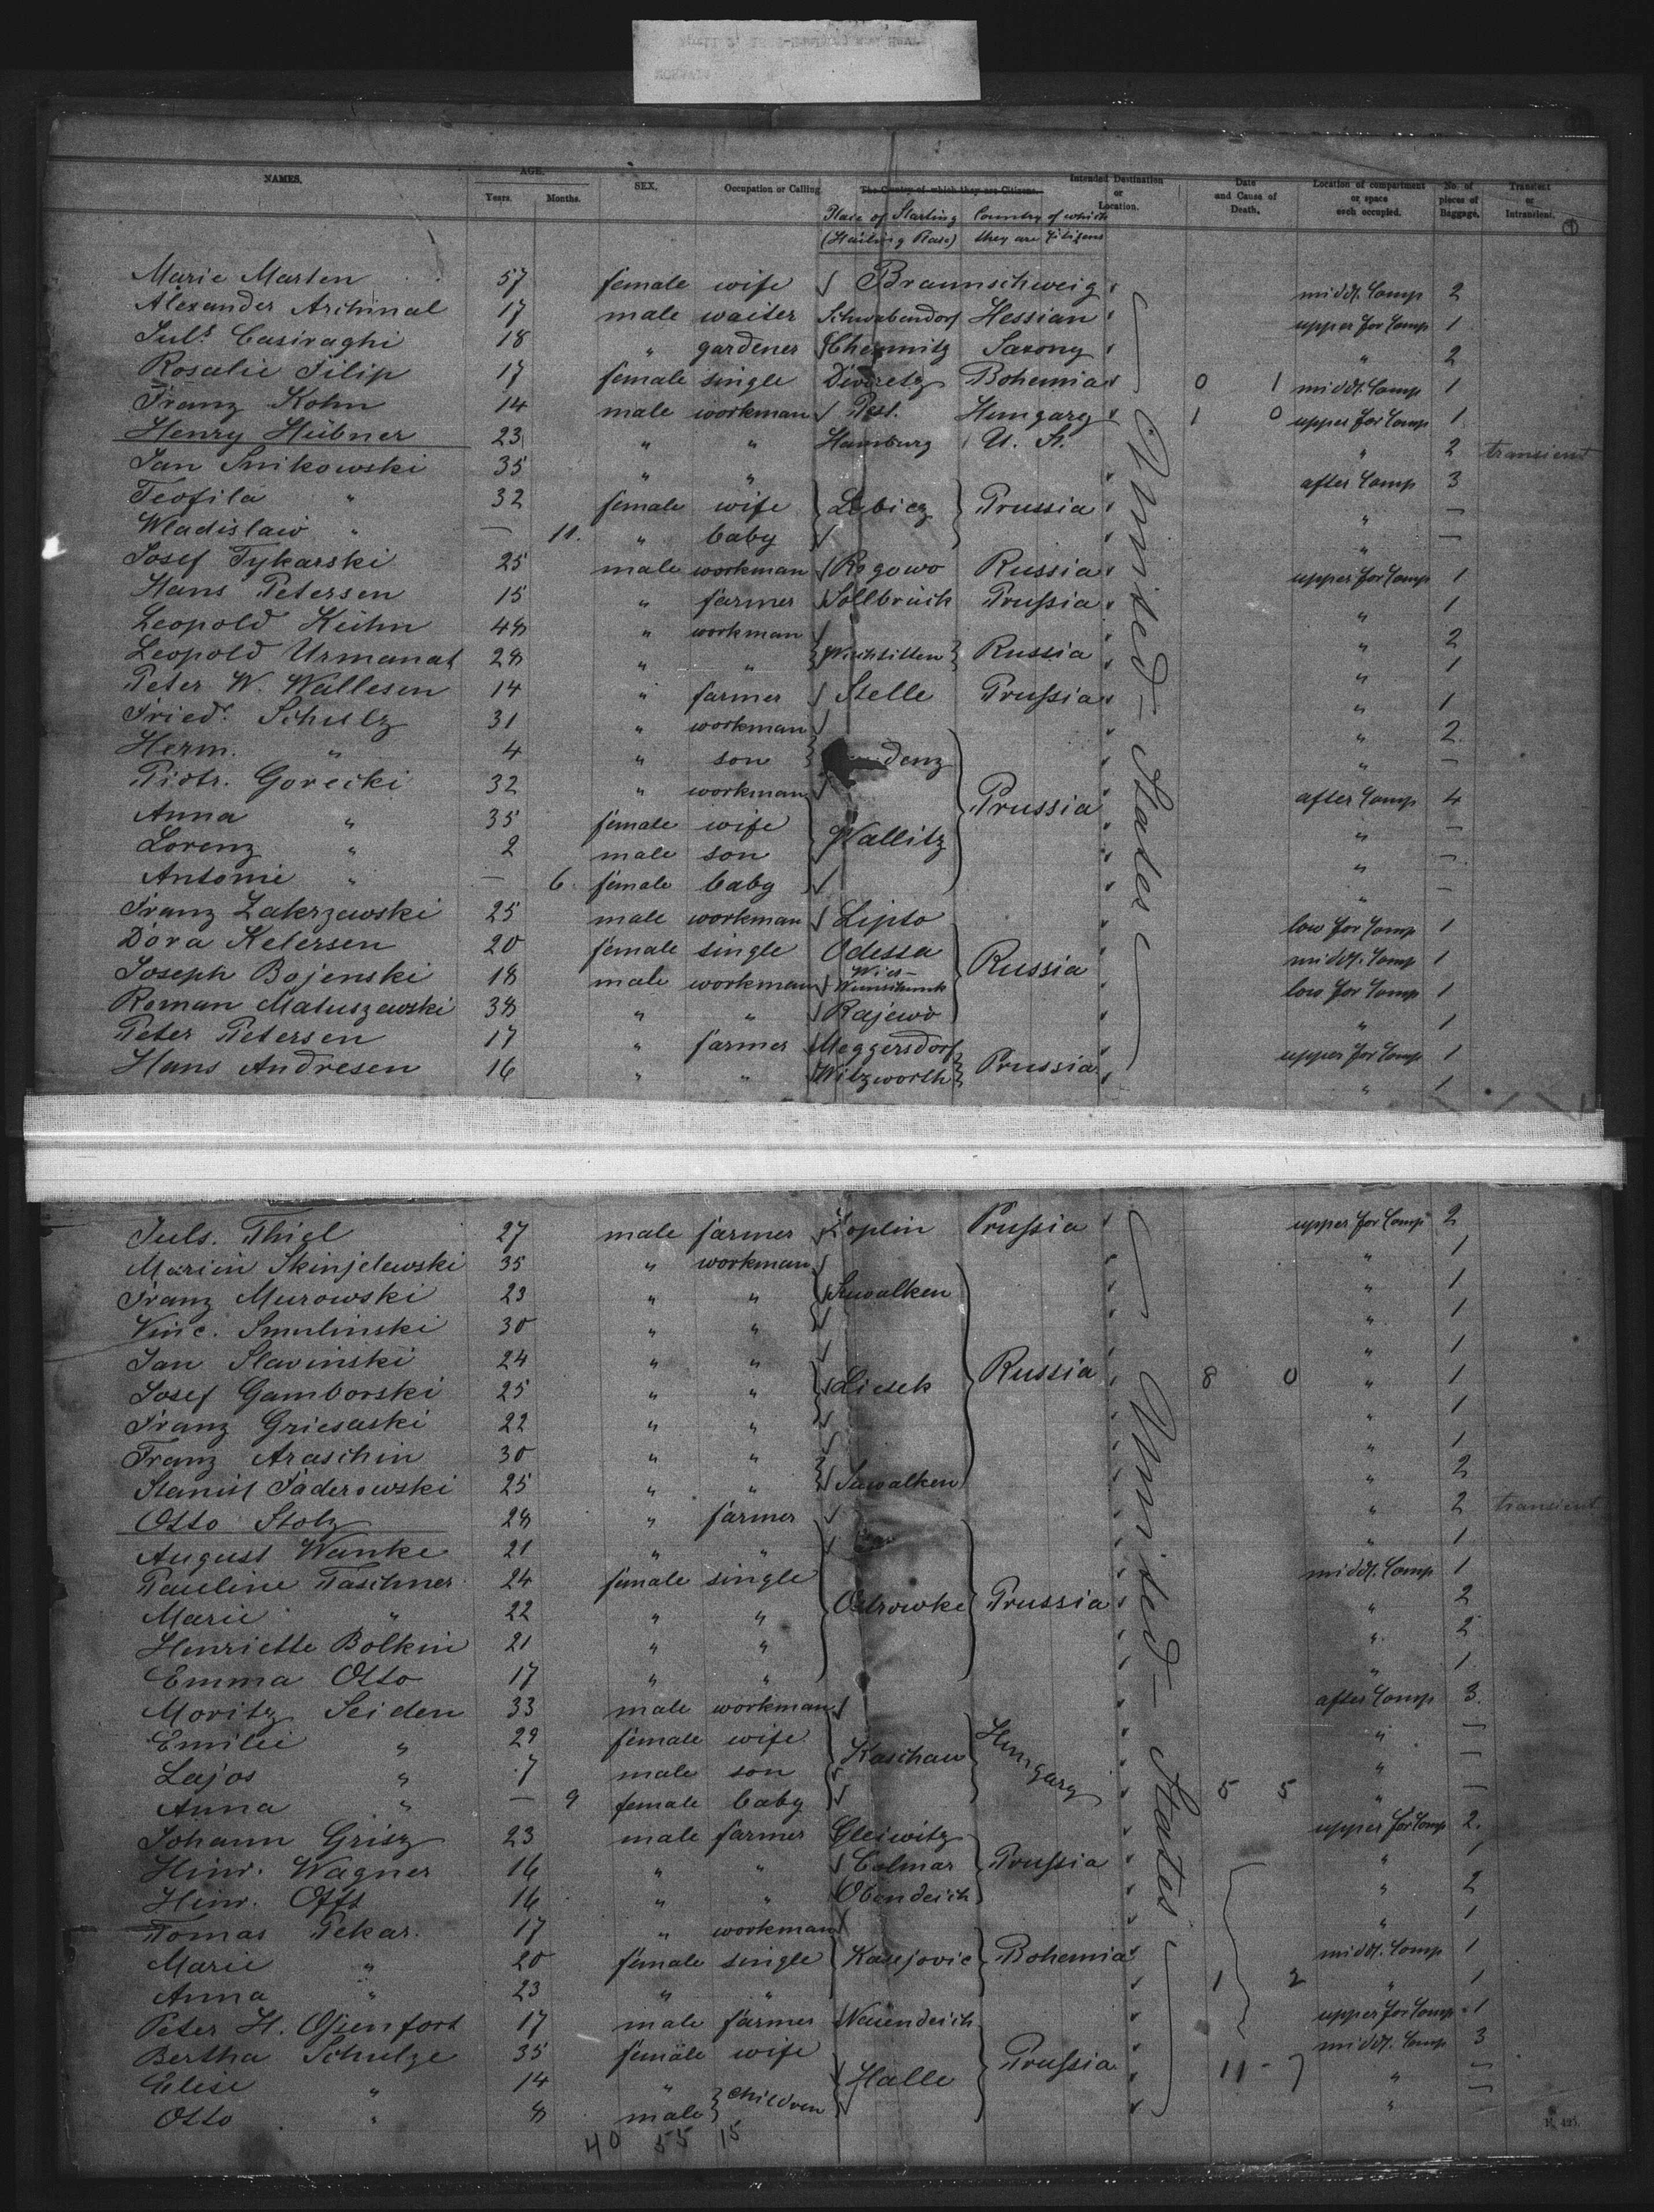 NAMES. AGE. Years. Months. SEX. Occupation or Calling. The Country of which they are Citizens. Intended Destination or Location. Date and Cause of Death. Location of compartment or space each occupied. No. of pieces of Baggage. Transient or Intransient.
Place of Starting Country of which
(Hailing Place) they are Citizens
Marie Marten 57 female wife Braunschweig middl. Comp 2
Alexander Archinal 17 male waiter Schwabendorf Hessian upper for Comp 1
Juls Casiraghi 18 " gardener Chemnitz Saxony " 2
Rosalie Filip 17 female single Bohemia 0 1 middl. Comp 1
Franz Kohn 14 male workman Pest. Hungary 1 0 upper for Comp 1
Henry Hübner 23 " " Hamburg U. St. " 2 transient
Jan Snikowski 35 " " after Comp 3
Teofila " 32 female wife Lubicz Prussia " —
Wladislaw " — 11. " baby " —
Josef Tykarski 25 male workman Rogowo Russia upper for Comp 1
Hans Petersen 15 " farmer Sollbrück Prussia " 1
Leopold Kühn 48 " workman " 2
Leopold Urmanat 28 " " Russia " 1
Peter W. Wallesen 14 " farmer Stelle Prussia " 1
Friedr. Schulz 31 " workman " 2
Herm. " 4 " son denz " —
Piotr. Gorecki 32 " workman Prussia after Comp 4
Anna " 35 female wife Wallitz " —
Lorenz " 2 male son " —
Antonie " — 6 female baby " —
Franz Zakrzewski 25 male workman Lipto low for Comp 1
Dora Ketersen 20 female single Odessa Russia middl. Comp 1
Joseph Bojenski 18 male workman low for Comp 1
Roman Matuszewski 38 " " Rajewo " 1
Peter Petersen 17 " farmer Meggersdorf Prussia upper for Comp 1
Hans Andresen 16 " " Witzworth " 1
United States
Juls. Thiel 27 male farmer Koplin Prussia upper for Comp 2
Marcin Skinjelewski 35 " workman " 1
Franz Murowski 23 " " Suwalken " 1
Vinc. Smulinski 30 " " " 1
Jan Slavinski 24 " " Russia " 1
Josef Gamborski 25 " " Liesek 8 0 " 1
Franz Griesaski 22 " " " 1
Franz Araschin 30 " " " 1
Stanisl Paderowski 25 " " Suwalken " 2
Otto Stolz 28 " farmer " 2 transient
August Wanke 21 " " " 1
Pauline Taschner 24 female single middl. Comp 1
Marie " 22 " " Ostrowke Prussia " 2
Henriette Bolkin 21 " " " 2
Emma Otto 17 " " " 1
Moritz Seiden 33 male workman after Comp 3
Emilie " 29 female wife Kaschau Hungary " —
Lajos " 7 male son " —
Anna " — 9 female baby 5 5 " —
Johann Grisz 23 male farmer Gleiwitz upper for Comp 2.
Hinr. Wagner 16 " " Colmar Prussia " 1
Hinr. Offt 16 " " Obendeich " 2
Tomas Pekar. 17 " workman " 1
Marie " 20 female single Kasejovic Bohemia middl. Comp 1
Anna " 23 " " 1 2 " 1
Peter H. Ossenfort 17 male farmer Neuendeich upper for Comp 1
Bertha Schulze 35 female wife Prussia middl. Comp 3
Elise " 14 " children Halle 11 7 " —
Otto " 8 male " —
United States
40 55 15